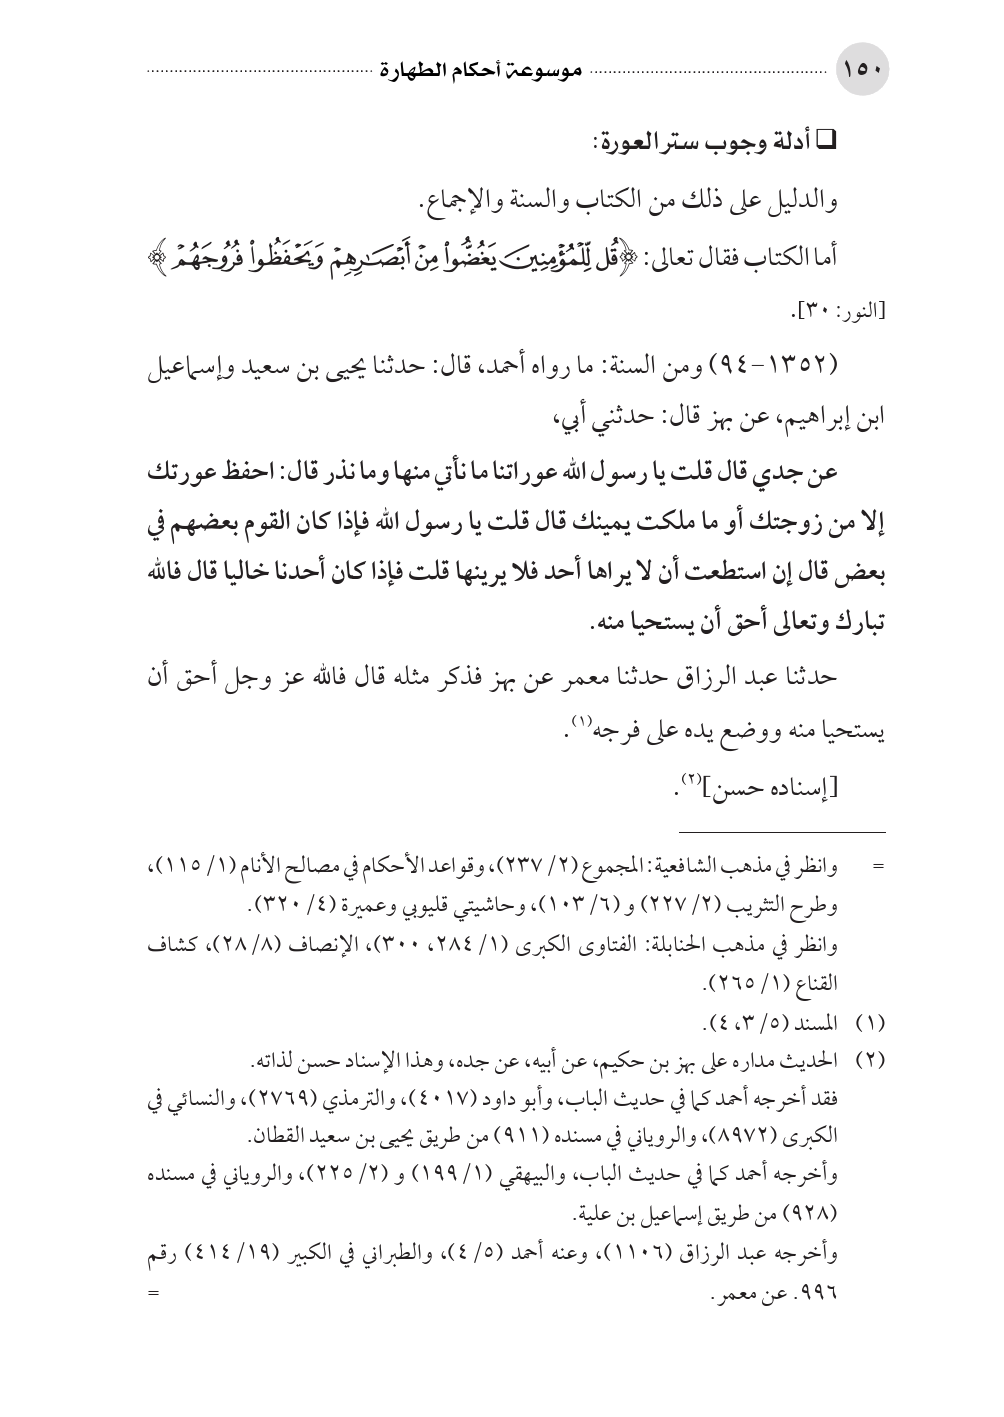 ١٥٠ موسوعة أحكام الطهارة
❑ أدلة وجوب ستر العورة:
والدليل على ذلك من الكتاب والسنة والإجماع.
أما الكتاب فقال تعالى: ﴿قُل لِّلْمُؤْمِنِينَ يَغُضُّوا۟ مِنْ أَبْصَٰرِهِمْ وَيَحْفَظُوا۟ فُرُوجَهُمْ﴾
[النور: ٣٠].
(١٣٥٢-٩٤) ومن السنة: ما رواه أحمد، قال: حدثنا يحيى بن سعيد وإسماعيل
ابن إبراهيم، عن بهز قال: حدثني أبي،
عن جدي قال قلت يا رسول الله عوراتنا ما نأتي منها وما نذر قال: احفظ عورتك
إلا من زوجتك أو ما ملكت يمينك قال قلت يا رسول الله فإذا كان القوم بعضهم في
بعض قال إن استطعت أن لا يراها أحد فلا يرينها قلت فإذا كان أحدنا خاليا قال فالله
تبارك وتعالى أحق أن يستحيا منه.
حدثنا عبد الرزاق حدثنا معمر عن بهز فذكر مثله قال فالله عز وجل أحق أن
يستحيا منه ووضع يده على فرجه(١).
[إسناده حسن](٢).
= وانظر في مذهب الشافعية: المجموع (٢/ ٢٣٧)، وقواعد الأحكام في مصالح الأنام (١/ ١١٥)،
وطرح التثريب (٢/ ٢٢٧) و (٦/ ١٠٣)، وحاشيتي قليوبي وعميرة (٤/ ٣٢٠).
وانظر في مذهب الحنابلة: الفتاوى الكبرى (١/ ٢٨٤، ٣٠٠)، الإنصاف (٨/ ٢٨)، كشاف
القناع (١/ ٢٦٥).
(١) المسند (٥/ ٣، ٤).
(٢) الحديث مداره على بهز بن حكيم، عن أبيه، عن جده، وهذا الإسناد حسن لذاته.
فقد أخرجه أحمد كما في حديث الباب، وأبو داود (٤٠١٧)، والترمذي (٢٧٦٩)، والنسائي في
الكبرى (٨٩٧٢)، والروياني في مسنده (٩١١) من طريق يحيى بن سعيد القطان.
وأخرجه أحمد كما في حديث الباب، والبيهقي (١/ ١٩٩) و (٢/ ٢٢٥)، والروياني في مسنده
(٩٢٨) من طريق إسماعيل بن علية.
وأخرجه عبد الرزاق (١١٠٦)، وعنه أحمد (٥/ ٤)، والطبراني في الكبير (١٩/ ٤١٤) رقم
٩٩٦. عن معمر. =